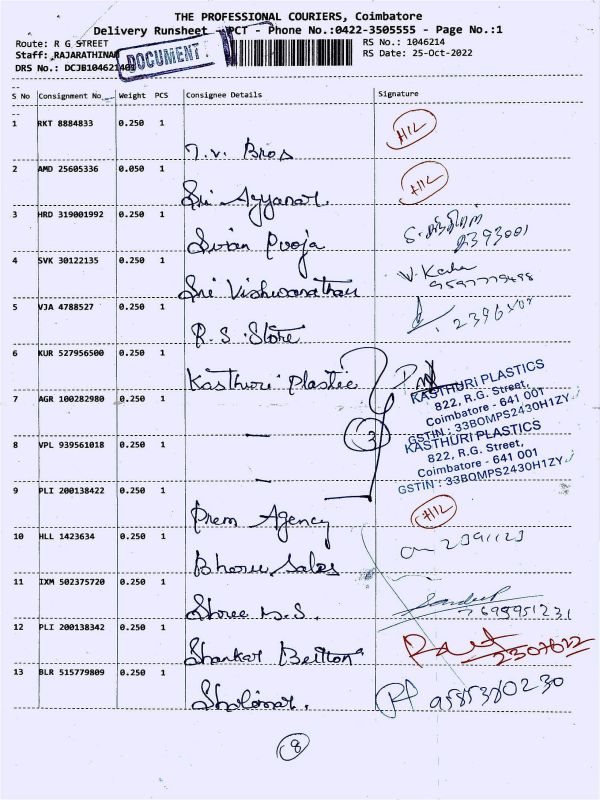 THE PROFESSIONAL COURIERS, Coimbatore
Delivery Runsheet - PCT - Phone No.:0422-3505555 - Page No.:1
Route: R G STREET
RS No.: 1046214
Staff: RAJARATHINAM
RS Date: 25-Oct-2022
DOCUMENT
S No Consignment No Weight PCS Consignee Details Signature
1 RKT 8884833 0.250 1
T.V. Bros HIL
2 AMD 25605336 0.050 1
Sri Ayyanar HIL
3 HRD 319001992 0.250 1
Sivan Pooja 2393001
4 SVK 30122135 0.250 1
Sri Vishwanathan
5 VJA 4788527 0.250 1
R.S. Store
6 KUR 527956500 0.250 1
Kasthuri Plastic
KASTHURI PLASTICS
822, R.G. Street,
Coimbatore - 641 001
GSTIN : 33BOMPS2430H1ZY
7 AGR 100282980 0.250 1
— 3
8 VPL 939561018 0.250 1
KASTHURI PLASTICS
822, R.G. Street,
Coimbatore - 641 001
GSTIN : 33BOMPS2430H1ZY
—
9 PLI 200138422 0.250 1
Prem Agency HIL
10 HLL 1423634 0.250 1
Sales
11 IXM 502375720 0.250 1
Shree
12 PLI 200138342 0.250 1
Shankar 2307622
13 BLR 515779809 0.250 1
8